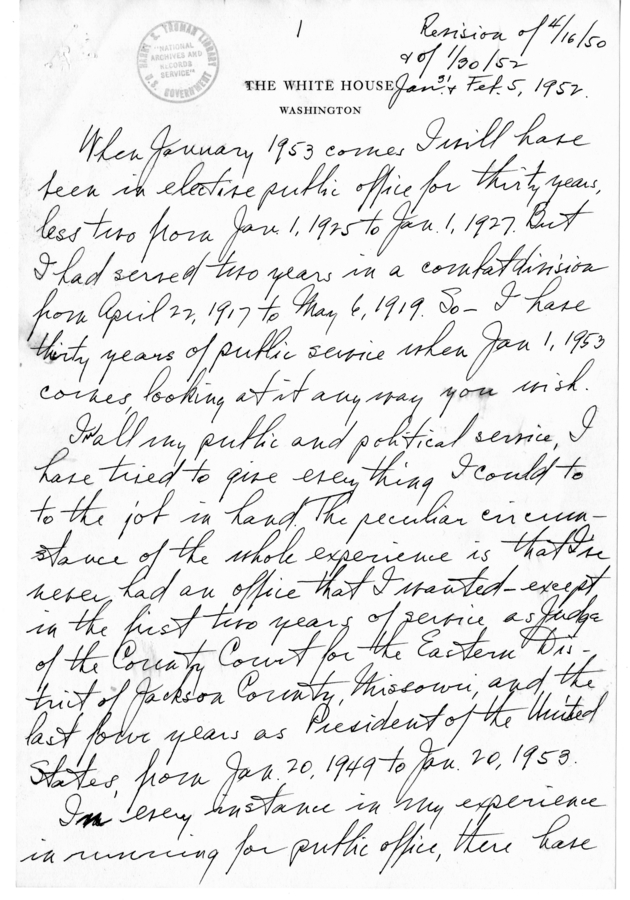 1
Revision of 4/16/50
& of 1/30/52
Jan. 31 & Feb. 5, 1952.
HARRY S. TRUMAN LIBRARY
"NATIONAL
ARCHIVES AND
RECORDS
SERVICE"
U.S. GOVERNMENT
THE WHITE HOUSE
WASHINGTON
When January 1953 comes I will have
been in elective public office for thirty years,
less two from Jan. 1, 1925 to Jan. 1, 1927. But
I had served two years in a combat division
from April 22, 1917 to May 6, 1919. So – I have
thirty years of public service when Jan 1, 1953
comes, looking at it any way you wish.
In all my public and political service, I
have tried to give everything I could to
to the job in hand. The peculiar circum-
stance of the whole experience is that I've
never had an office that I wanted – except
in the first two years of service as Judge
of the County Court for the Eastern Dis-
trict of Jackson County, Missouri, and, the
last four years as President of the United
States, from Jan. 20, 1949 to Jan. 20, 1953.
In every instance in my experience
in running for public office, there have